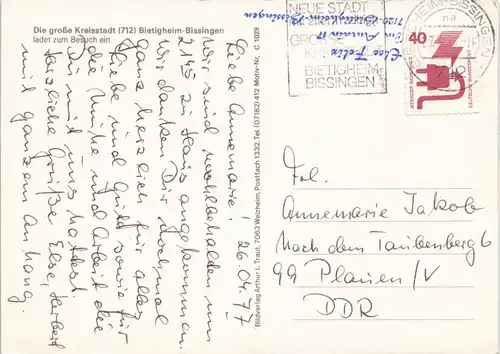 Die große Kreisstadt (712) Bietigheim-Bissingen
ladet zum Besuch ein
26.04.77
Liebe Annemarie!
Wir sind wohlbehalten um
2145 zu Haus angekommen.
Wir danken Dir nochmal
ganz herzlich für alles
Liebe und Gute sowie für
die Mühe und Arbeit die
Du mit uns hattest.
Herzliche Grüße Else, Herbert
mit ganzem Anhang.
Bildverlag Arthur L. Traut, 7063 Welzheim, Postfach 1332, Tel. (07182) 412 Motiv-Nr. C 1029
NEUE STADT
GROSSE
BIETIGHEIM-
BISSINGEN
Else Felix
7120 Bietigheim-Bissingen
BIETIGHEIM-BISSINGEN
40
JEDERZEIT SICHERHEIT
DEUTSCHE BUNDESPOST
Frl.
Annemarie Jakob
Nach dem Taubenberg 6
99 Plauen/V
DDR